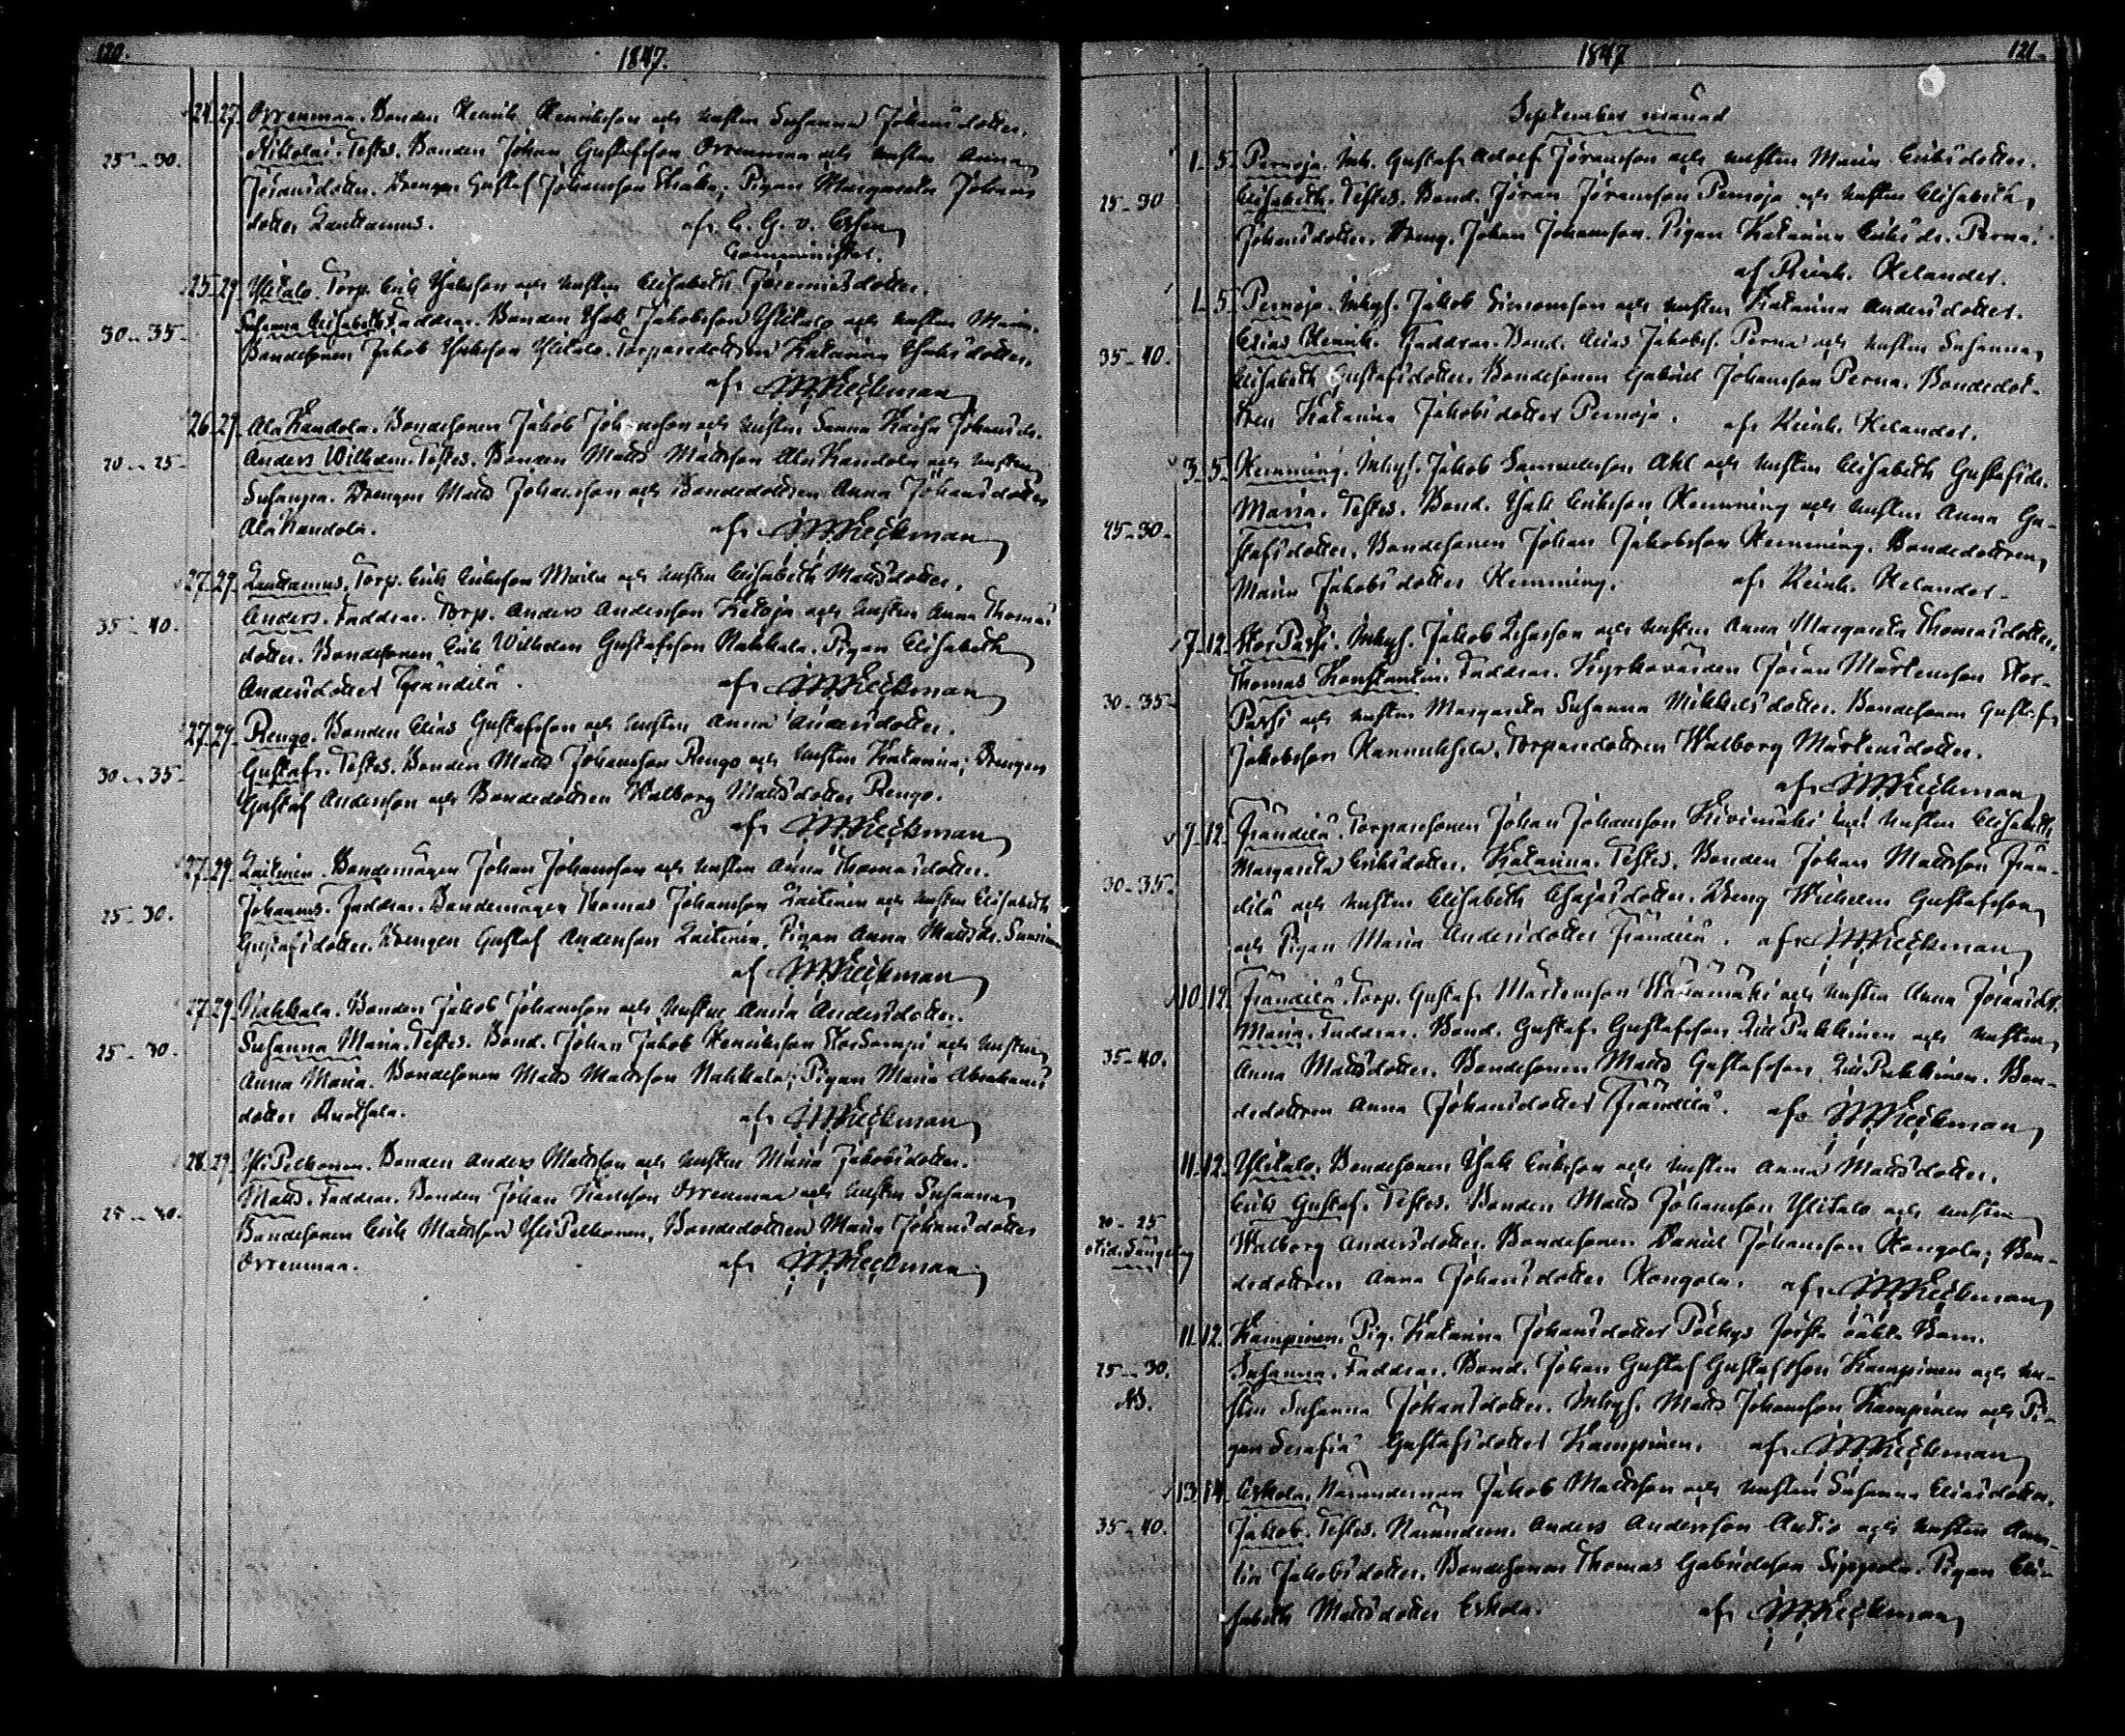 120.
1847.
24. 27. Orrenmaa. Bonden Henrik Henriksson och hustru Susanna Johansdotter.
25-30. Nikolai. Testes. Bonden Johan Gustafsson Orrenmaa och hustru Anna
Jöransdotter. Drengen Gustaf Johansson; Pigan Margareta Johans
dotter Lauttamus. af C. G. v. Essen
Comminister.
25. 29. Ylitalo. Torp. Erik Isaksson och hustru Elisabeth Jeremiasdotter.
30-35. Susanna Elisabeth. Faddrar. Bonden Isak Jakobsson Ylitalo och hustru Maria.
Bondesonen Jakob Isaksson Ylitalo. Torparedottren Katarina Isaksdotter.
af
26. 29. Ala Kandola. Bondesonen Jakob Johansson och hustru Sanna Kaisa Johansdr.
20-25. Anders Wilhelm. Testes. Bonden Matts Mattsson Ala Kandola och hustru
Susanna. Drengen Matts Johansson och Bondedottren Anna Johansdotter
Ala Kandola. af
27. 29. Lauttamus. Torp. Erik Eriksson och hustru Elisabeth Mattsdotter.
35-40. Anders. Faddrar. Torp. Anders Andersson Ketoja och hustru Anna Thomas
dotter. Bondesonen Erik Wilhelm Gustafsson Nahkala. Pigan Elisabeth
Andersdotter Frändilä. af
27. 29. Rengo. Bonden Elias Gustafsson och hustru Anna Andersdotter.
30-35. Gustaf. Testes. Bonden Matts Johansson Rengo och hustru Katarina; Drengen
Gustaf Andersson och Bondedottren Walborg Mattsdotter Rengo.
af
27. 29. Laitinen. Bondemågen Johan Johansson och hustru Anna Thomasdotter.
25-30. Johannes. Faddrar. Bondemågen Thomas Johansson Laitinen och hustru Elisabeth
Gustafsdotter. Drengen Gustaf Andersson Laitinen, Pigan Anna Mattsdr.
af
27. 29. Nahkala. Bonden Jakob Johansson och hustru Anna Andersdotter.
25-30. Susanna Maria. Testes. Bond. Johan Jakob Henriksson och hustru
Anna Maria. Bondesonen Matts Mattsson Nahkala; Pigan Maria Abrahams
dotter. af
28. 29. Yli Pelkonen. Bonden Anders Mattsson och hustru Maria Jakobsdotter.
25-30. Matts. Faddrar. Bonden Johan Karlsson Orrenmaa och hustru Susanna
Bondesonen Erik Mattsson Yli Pelkonen, Bondedottren Maria Johansdotter
Orrenmaa. af
1847
121.
September månad
1. 5. Pernoja. Inh. Gustaf Adolf Jöransson och hustru Maria Eriksdotter.
25-30 Elisabeth. Testes. Bond. Jöran Jöransson Pernoja och hustru Elisabeth
Johansdotter. Dreng. Johan Johansson. Pigan Katarina Eriksdr. Perna.
af Reinh. Helander.
1. 5. Pernoja. Inhys. Jakob Simonsson och hustru Katarina Andersdotter.
35-40. Elias Henrik. Faddrar. Bond. Elias Jakobss. Perna och hustru Susanna
Elisabeth Gustafsdotter. Bondesonen Gabriel Johansson Perna. Bondedot-
tren Katarina Jakobsdotter Pernoja. af Reinh. Helander.
3. 5. Hemming. Inhys. Jakob Samuelsson Ahl och hustru Elisabeth Gustafsdr.
25-30. Maria. Testes. Bond. Isak Eriksson Hemming och hustru Anna Gu-
stafsdotter, Bondesonen Johan Jakobsson Hemming. Bondedottren
Maria Jakobsdotter Hemming. af Reinh. Helander.
7. 12. Stor Passi. Inhys. Jakob och hustru Anna Margareta Thomasdotter.
30-35. Thomas Konstantin. Faddrar. Kyrkovärden Jöran Mårtensson Stor-
Passi och hustru Margareta Susanna Mikkelsdotter. Bondesonen Gustaf
Jakobsson Hannuksela. Torparedottren Walborg Mårtensdotter.
af
9. 12. Frändilä. Torparesonen Johan Johansson Kivimäki och hustru Elisabeth
30-35. Margareta Eriksdotter. Katarina. Testes. Bonden Johan Mattsson Frän-
dilä och hustru Elisabeth Esajasdotter. Dreng Wilhelm Gustafsson
och Pigan Maria Andersdotter Frändilä. af
10. 12. Frändilä. Torp. Gustaf Mårtensson och hustru Anna Jöransdr.
35-40. Maria. Faddrar. Bond. Gustaf Gustafsson Lill Pukkinen och hustru
Anna Mattsdotter. Bondesonen Matts Gustafsson Lill Pukkinen. Bon-
dedottren Anna Johansdotter Frändilä. af
11. 12. Ylitalo. Bondesonen Isak Eriksson och hustru Anna Mattsdotter.
20-25 Erik Gustaf. Testes. Bonden Matts Johansson Ylitalo och hustru
Walborg Andersdotter. Bondesonen Daniel Johansson Hongola; Bon-
dedottren Anna Johansdotter Hongola. af
11. 12. Kampinen. Pig. Katarina Johansdotters första oäkta Barn.
25-30. Susanna. Faddrar. Bond. Johan Gustaf Gustafsson Kampinen och hu-
stru Susanna Johansdotter. Inhys. Matts Johansson Kampinen och Pi-
gan Serafia Gustafsdotter Kampinen. af
13. 14. Eskola. Nämndeman Jakob Mattsson och hustru Susanna Eliasdotter.
35-40. Jakob. Testes. Nämndem. Anders Andersson Antio och hustru
Jakobsdotter. Bondesonen Thomas Gabrielsson Sippola. Pigan Eli-
sabeth Mattsdotter Eskola. af